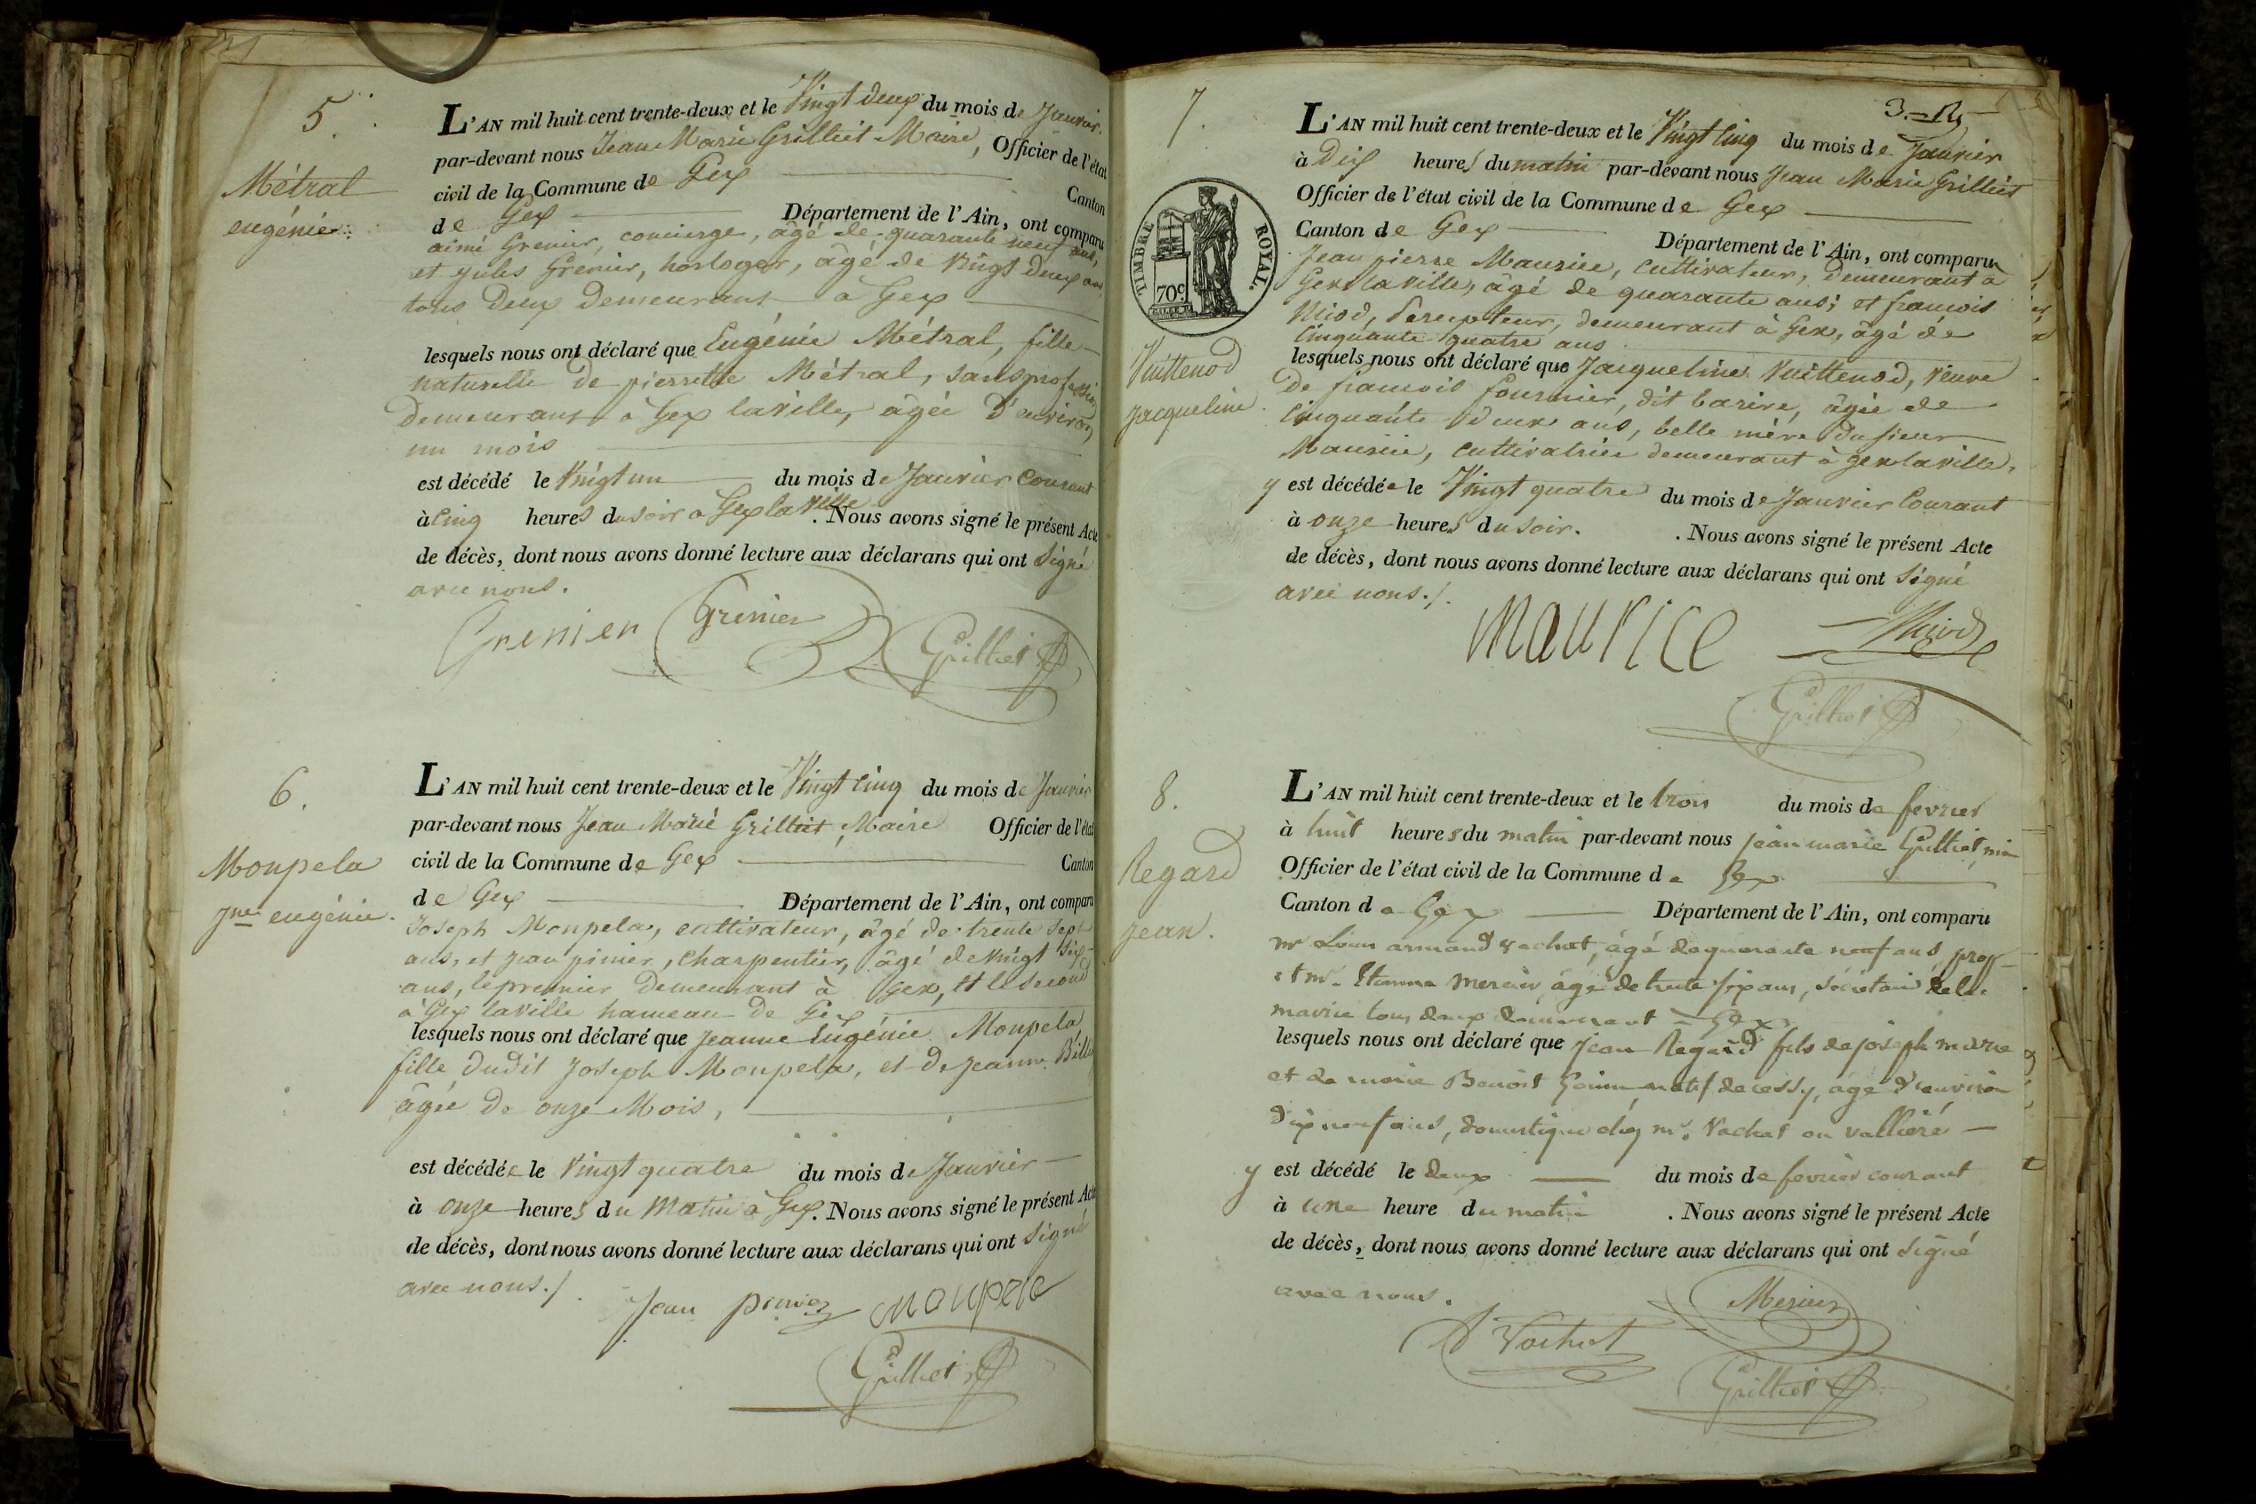 5.
Métral
eugénie
L'AN mil huit cent trente-deux et le Vingt deux du mois de Janvier
par-devant nous Jean Marie Grilliet Maire, Officier de l'état
civil de la Commune de Gex Canton
de Gex Département de l'Ain, ont comparu
aimé Grenier, concierge, âgé de quarante neuf ans,
et jules Grenier, horloger, âgé de vingt deux ans
tous deux demeurant à Gex
lesquels nous ont déclaré que Eugénie Métral, fille
naturelle de pierrette Métral, sans profession
demeurant à Gex laville, âgée d'environ
un mois
est décédé le Vingt un du mois de Janvier Courant
à Cinq heures du soir à Gex la ville. Nous avons signé le présent Acte
de décès, dont nous avons donné lecture aux déclarans qui ont Signé
avec nous.
Grenier Grenier Grilliet
6.
Monpela
Jne eugénie.
L'AN mil huit cent trente-deux et le Vingt Cinq du mois de Janvier
par-devant nous Jean Marie Grilliet, Maire Officier de l'état
civil de la Commune de Gex Canton
de Gex Département de l'Ain, ont comparu
Joseph Monpela, cultivateur, âgé de trente sept
ans, et jean pinier, Charpentier, âgé de vingt six
ans, le premier demeurant à Gex, et le second
à Gex laville hameau de Gex
lesquels nous ont déclaré que Jeanne Eugénie Monpela,
fille dudit Joseph Monpela, et de Jeanne
âgée de onze Mois,
est décédée le Vingt quatre du mois de Janvier
à onze heures du Matin à Gex. Nous avons signé le présent Acte
de décès, dont nous avons donné lecture aux déclarans qui ont Signé
avec nous./.
Jean monpela
Grilliet
3.
7.
TIMBRE ROYAL.
70c
Vuittenod
Jacqueline
L'AN mil huit cent trente-deux et le Vingt Cinq du mois de Janvier
à Dix heures du matin par-devant nous Jean Marie Grilliet
Officier de l'état civil de la Commune de Gex
Canton de Gex Département de l'Ain, ont comparu
Jean pierre Maurice, Cultivateur, demeurant à
Gex laville, âgé de quarante ans; et françois
Niod, Percepteur, demeurant à Gex, âgé de
Cinquante quatre ans
lesquels nous ont déclaré que Jacqueline Vuittenod, Veuve
de françois fournier, dit barire, âgée de
Cinquante deux ans, belle mère du sieur
Maurice, Cultivatrice demeurant à gex laville,
y est décédée le Vingt quatre du mois de Janvier Courant
à onze heures du soir. . Nous avons signé le présent Acte
de décès, dont nous avons donné lecture aux déclarans qui ont Signé
avec nous./.
maurice Niod
Grilliet
8.
Regard
Jean.
L'AN mil huit cent trente-deux et le trois du mois de fevrier
à huit heures du matin par-devant nous jean marie Grilliet,
Officier de l'état civil de la Commune de Gex
Canton de Gex Département de l'Ain, ont comparu
mr Louis armand vachat, âgé de quarante neuf ans,
et mr. Etienne Mercier, âgé de trente six ans, sécrétaire de la
mairie tous deux demeurant à Gex
lesquels nous ont déclaré que jean Regard fils de joseph marie
et de marie Benoit natif de cessy, agé d'environ
dix neuf ans, domestique chez mr. Vachat
y est décédé le deux du mois de fevrier courant
à une heure du matin . Nous avons signé le présent Acte
de décès, dont nous avons donné lecture aux déclarans qui ont signé
avec nous.
Mercier
Vachat
Grilliet